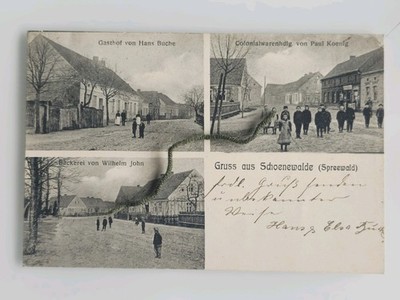 Gasthof von Hans Buche
Colonialwarenhdlg von Paul Koenig
Bäckerei von Wilhelm John
Gruss aus Schoenewalde (Spreewald)
senden
unbekannter
Weise
Hans